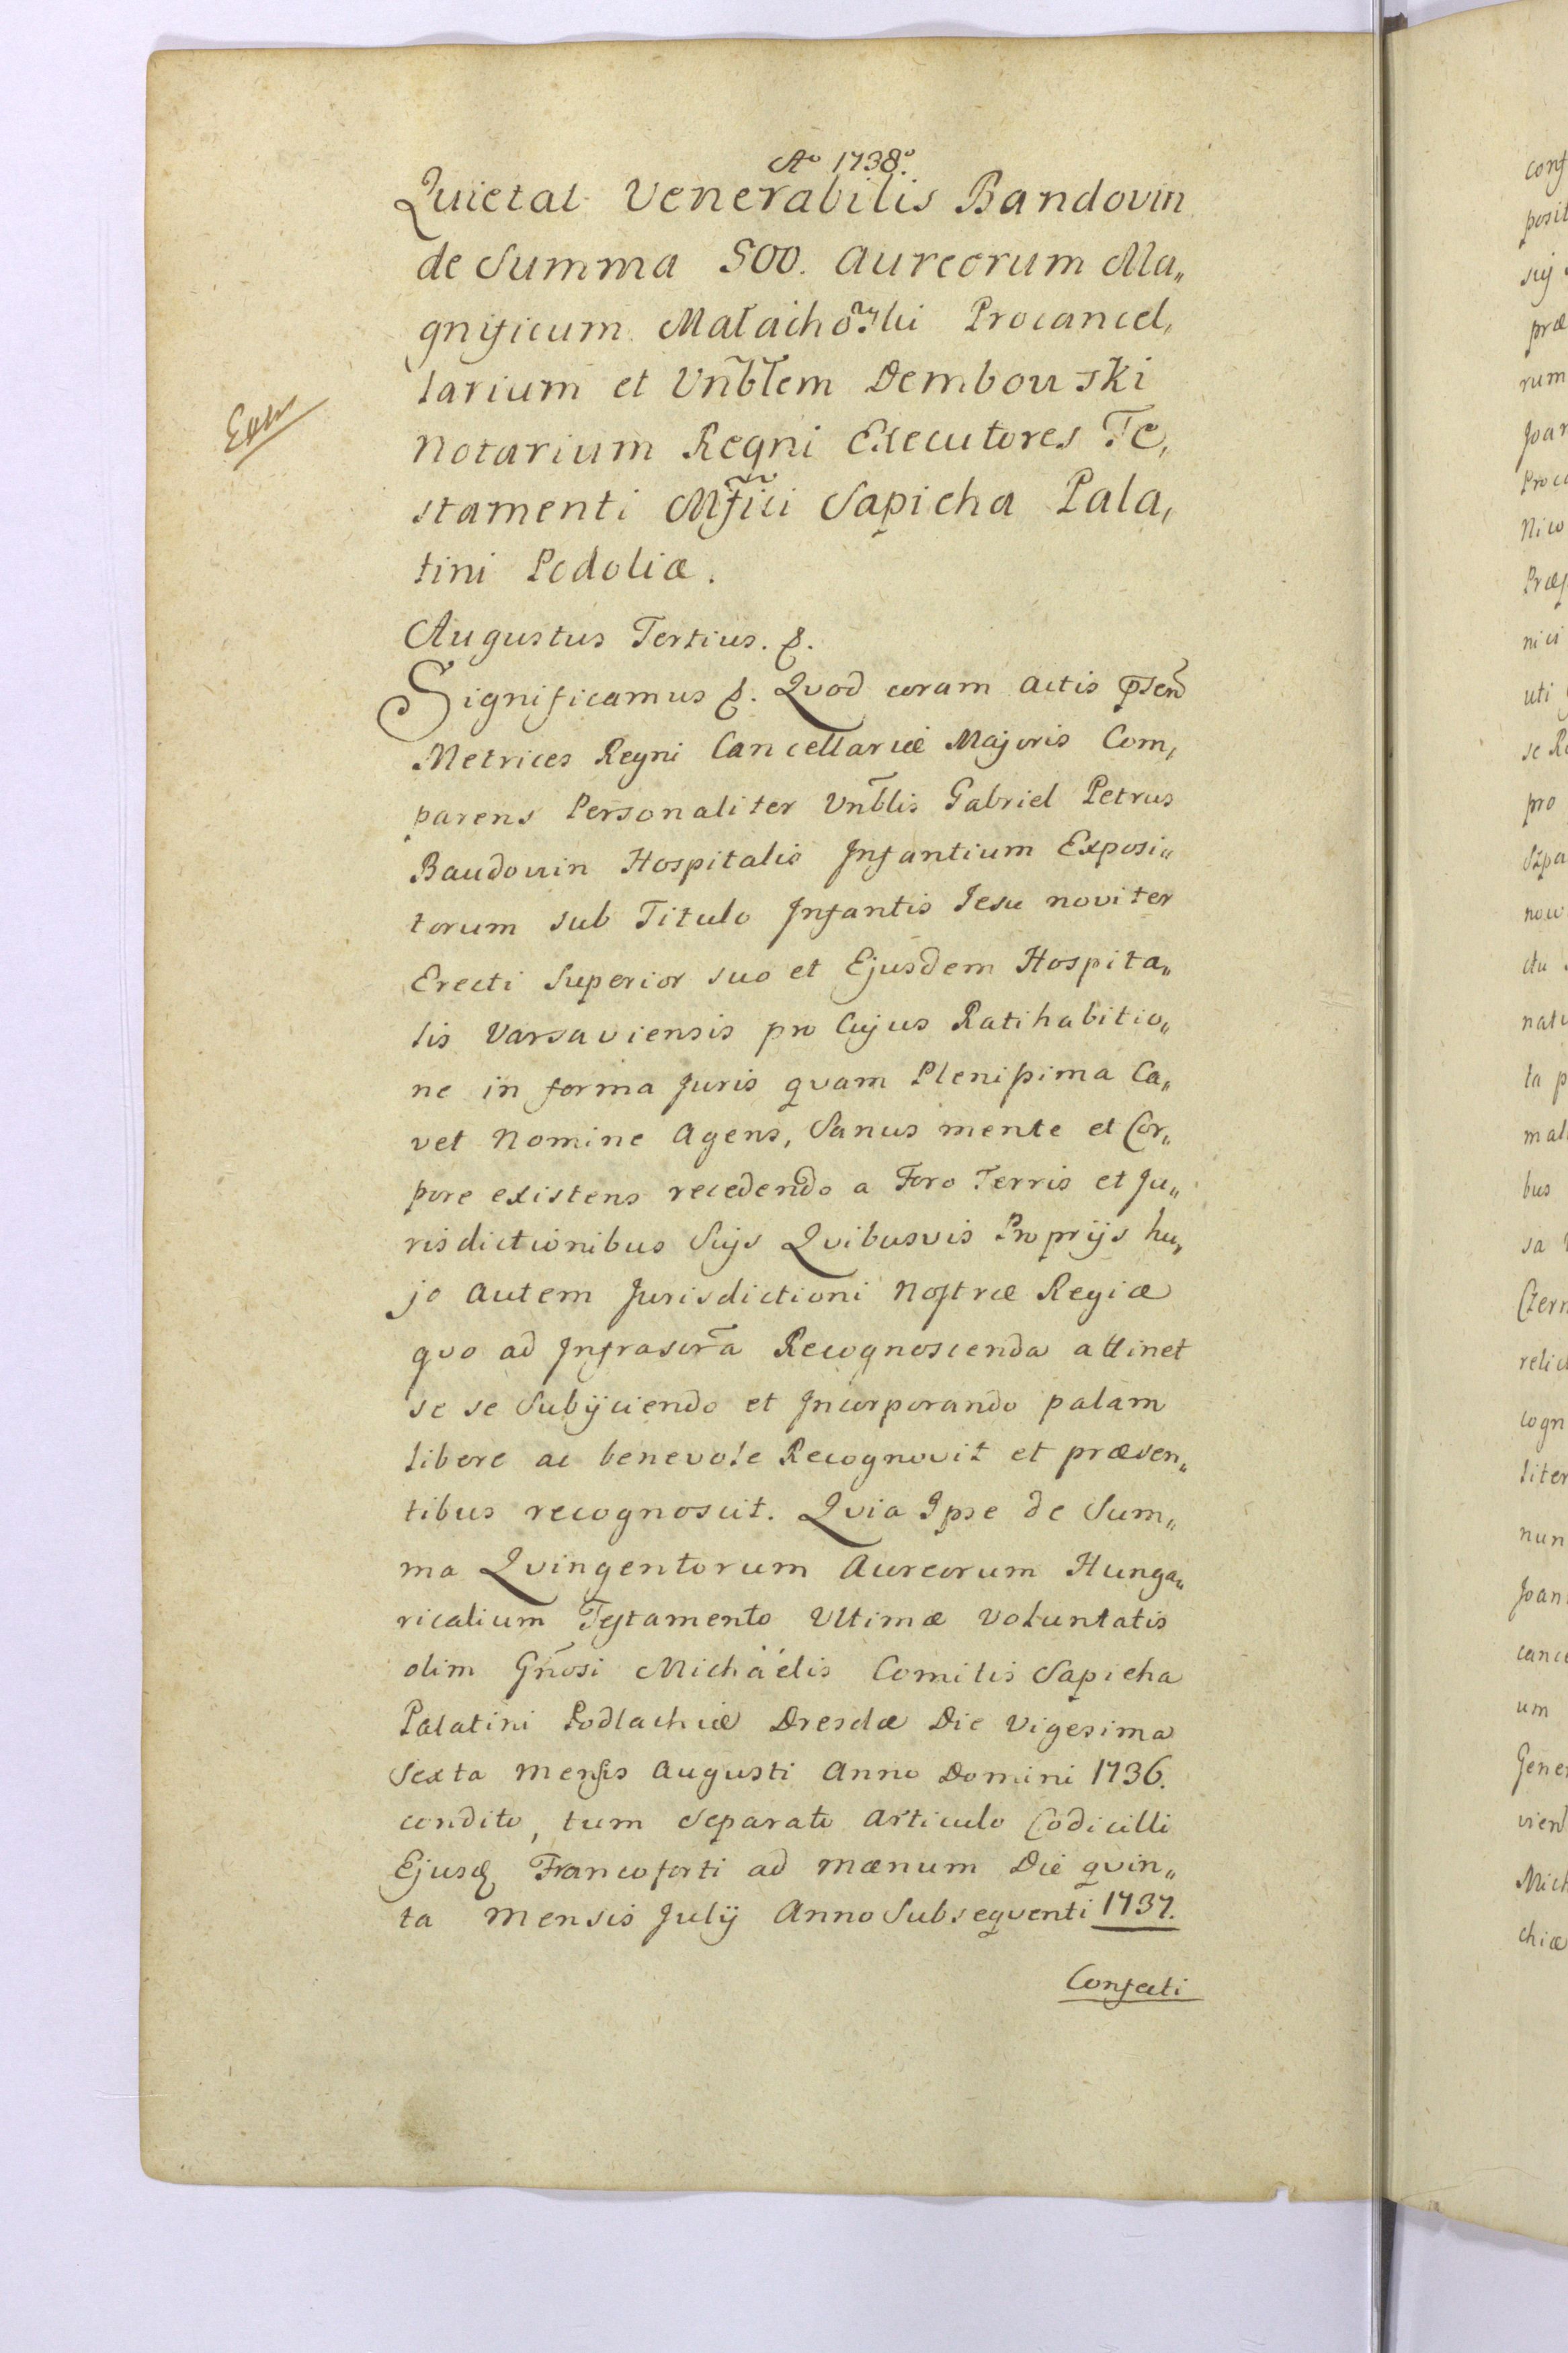 Aº 1738º.
Quietat Venerabilis Bandovin
de Summa 500. Aureorum Ma„
gnificum Małachow̃ski Procancel,
larium et Vñblem Dembowski
Notarium Regni Executores Te,
stamenti Mf̃ici Sapieha Pala,
tini Podoliæ.
Augustus Tertius. &.
Significamus &. Qvod coram Actis p̃sen
Metrices Regni Cancellariæ Majoris Com,
parens Personaliter Vñblis Gabriel Petrus
Baudouin Hospitalis Infantium Exposi„
torum sub Titulo Infantis Jesu noviter
Erecti Superior suo et Ejusdem Hospita„
lis Varsaviensis pro Cujus Ratihabitio„
ne in forma Juris quam Plenissima Ca„
vet Nomine Agens, Sanus mente et Cor„
pore existens recedendo a Foro Terris et Ju„
risdictionibus Suis Qvibusvis Proprijs hu,
jo autem Jurisdictioni Nostræ Regiæ
quo ad Infrascr̃a Recognoscenda attinet
se se Subijciendo et Incorporando palam
libere ac benevole Recognovit et præsen„
tibus recognoscit. Qvia Ipse de Sum„
ma Qvingentorum Aureorum Hunga„
ricalium Testamento Ultimæ Voluntatis
olim Gñosi Michaëlis Comitis Sapieha
Palatini Podlachiæ Dresdæ Die Vigesima
Sexta Mensis Augusti Anno Domini 1736.
condito, tum Separato Articulo Codicilli
Ejusq Francoforti ad Mænum Die qvin„
ta Mensis Julij Anno Subseqventi 1737.
Confecti